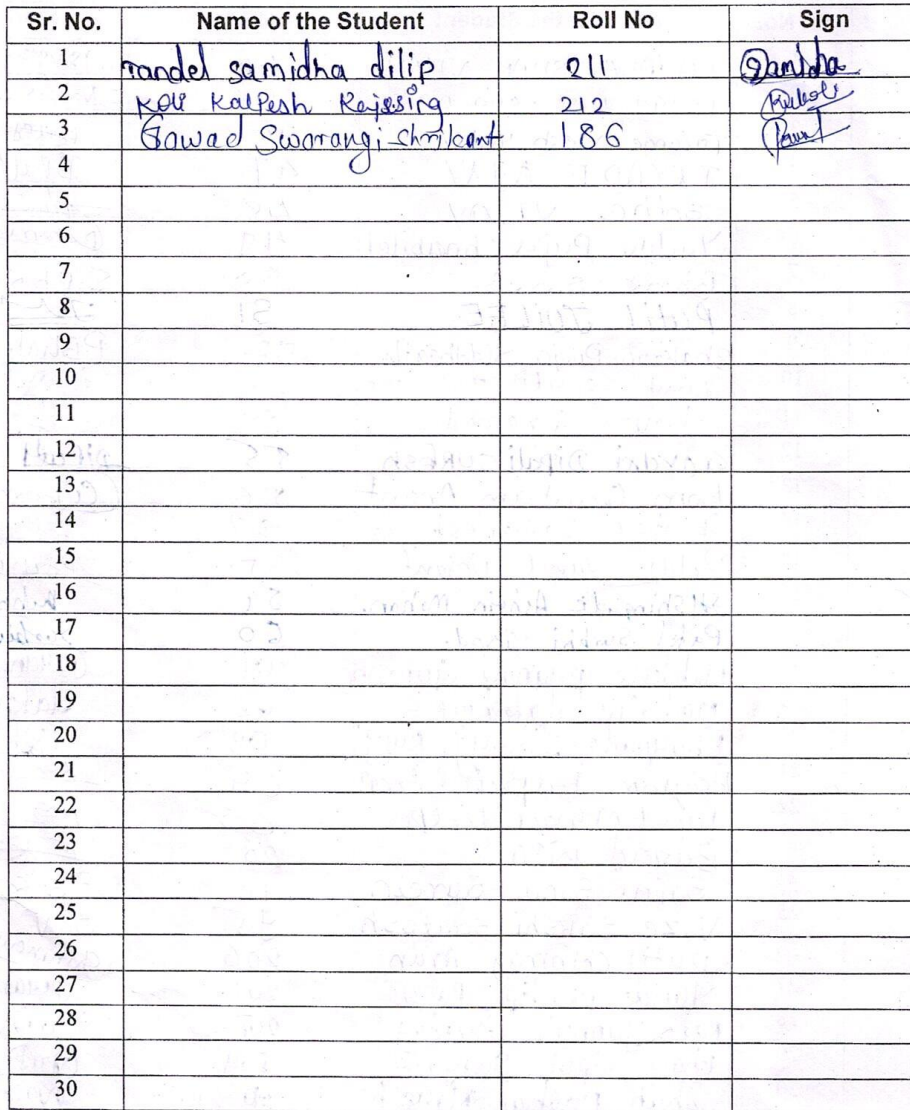 Sr. No. Name of the Student Roll No Sign
1 Tandel samidha dilip 211 Samidha
2 Koli Kalpesh Rajesing 212
3 Gawad Swarangi Shrikant 186
4
5
6
7
8
9
10
11
12
13
14
15
16
17
18
19
20
21
22
23
24
25
26
27
28
29
30